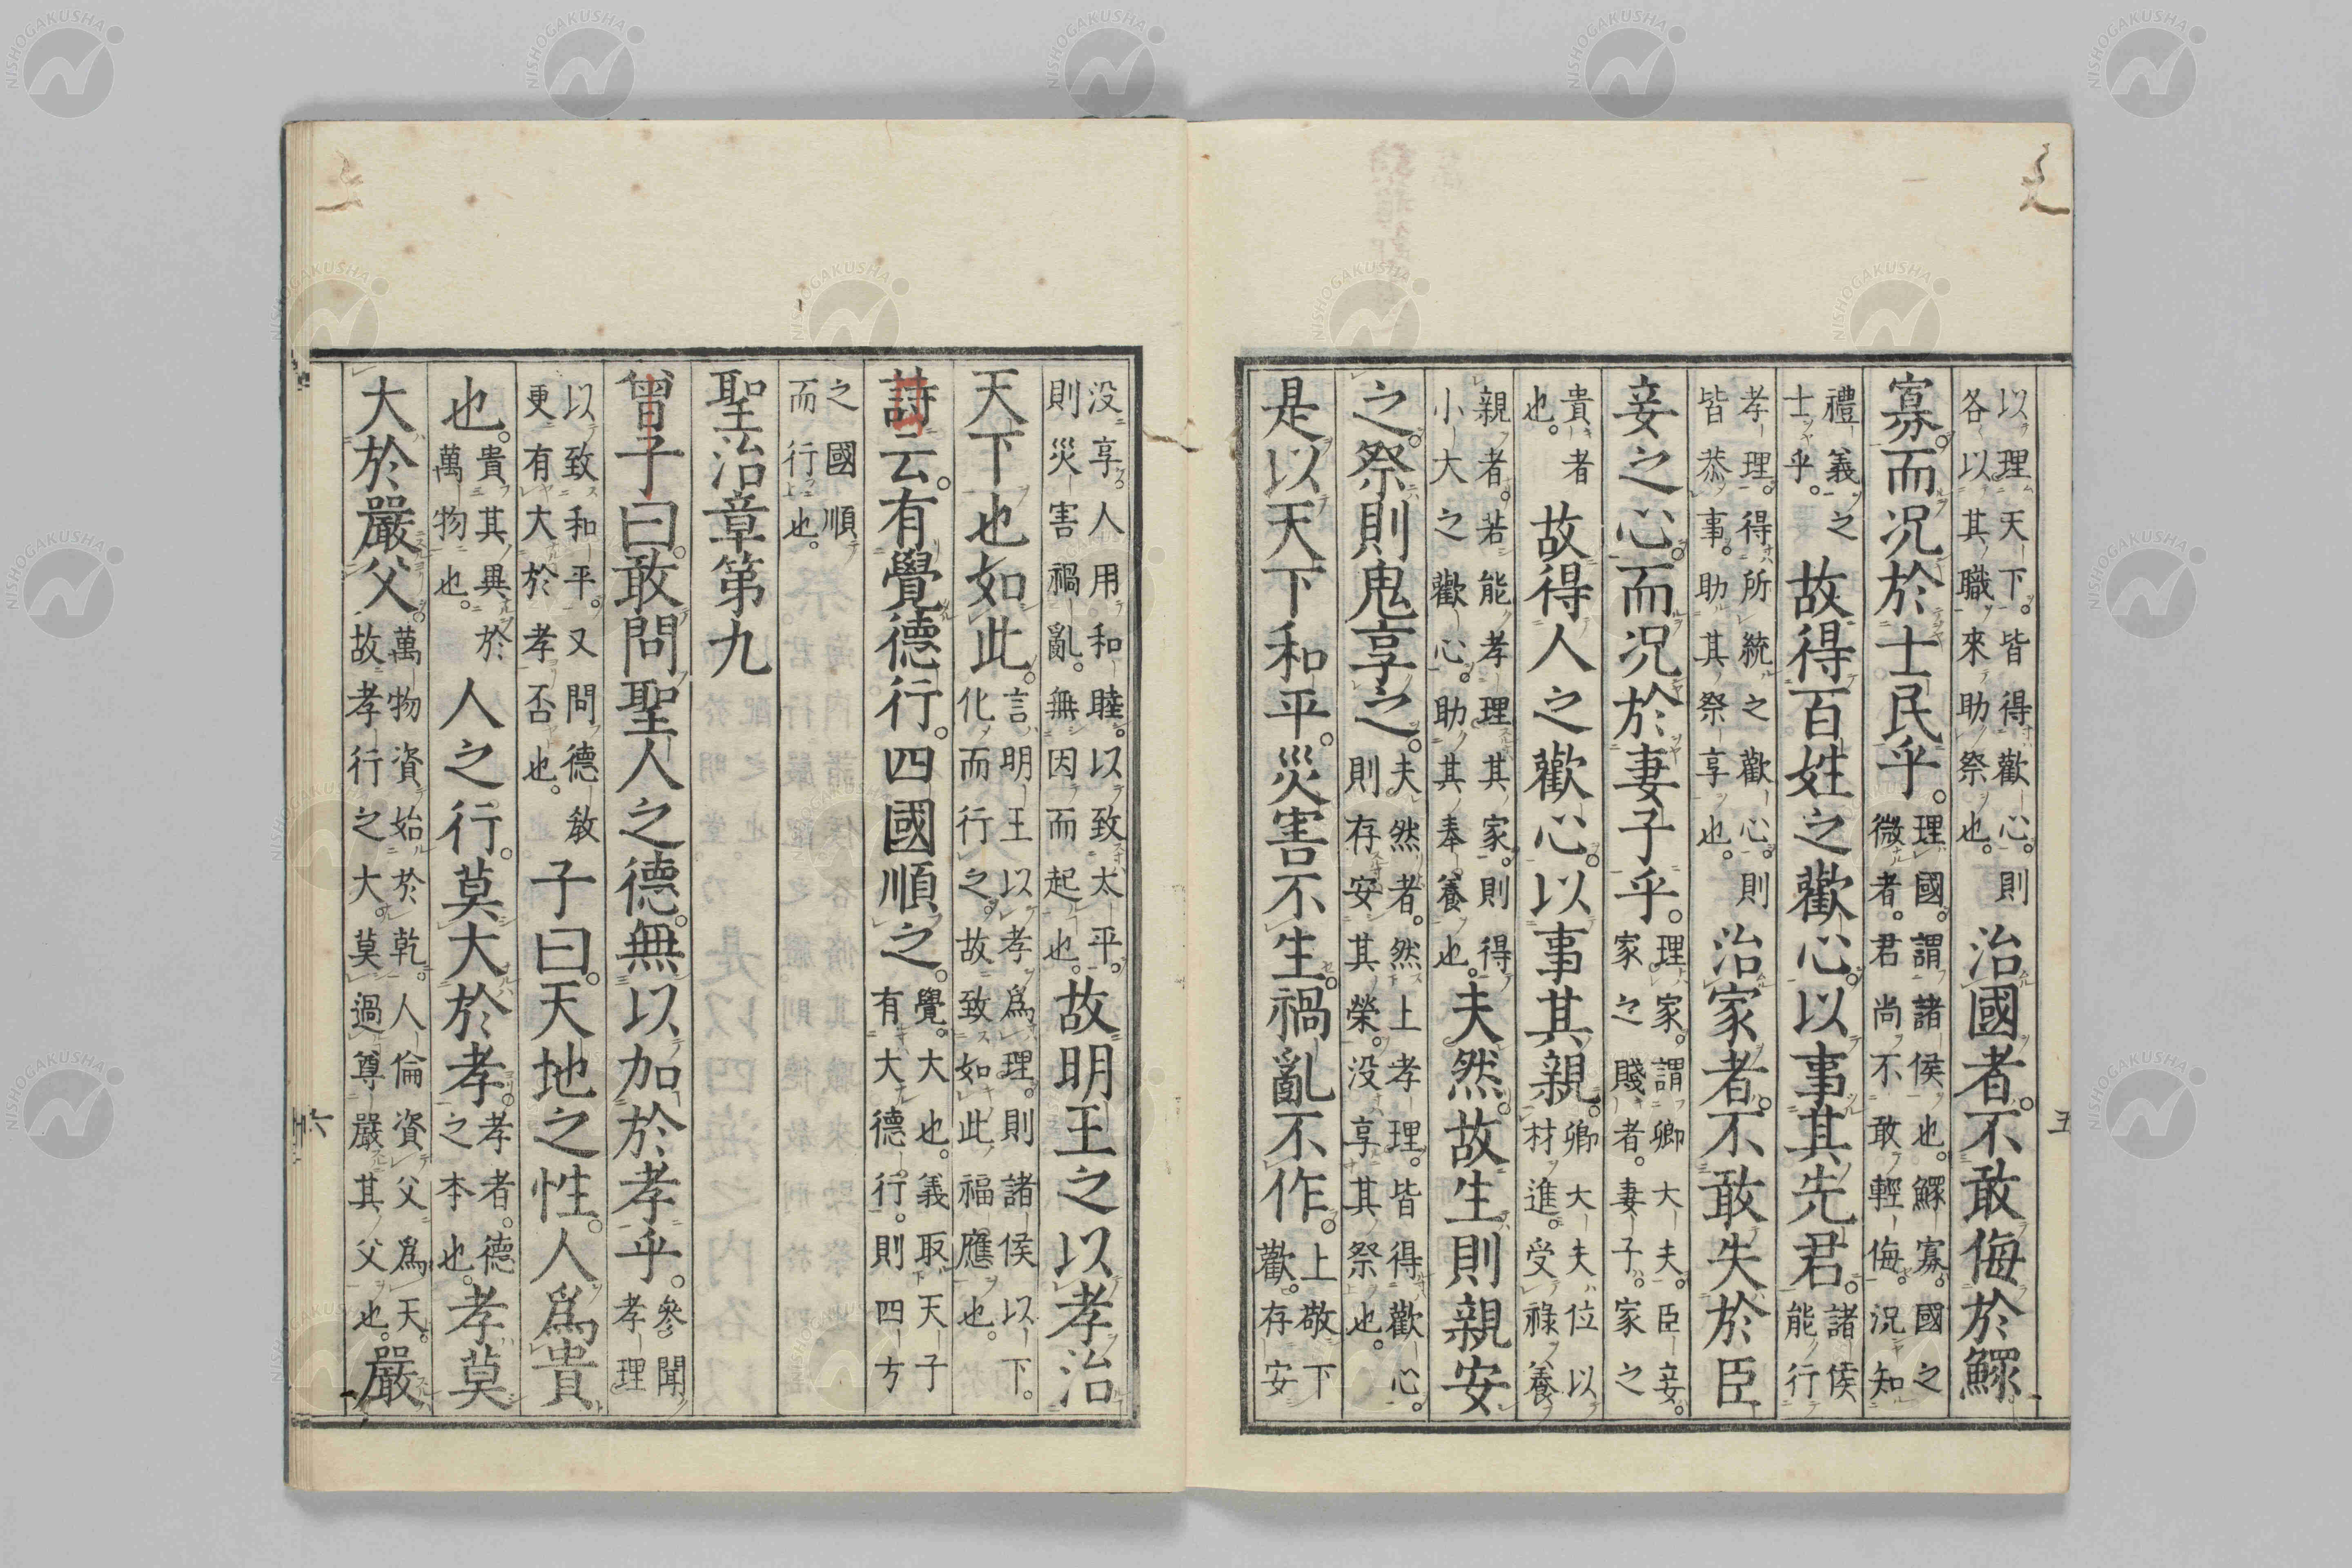 五
以理天下。皆得歡心。則各以其職來助祭也。治國者。不敢侮於鰥
寡。而况於士民乎。理國。謂諸侯也。鰥寡。國之微者。君尚不敢輕侮。況知
禮義之士乎。故得百姓之歡心。以事其先君。諸侯能行
孝理。得所統之歡心。則皆恭事。助其祭享也。治家者。不敢失於臣
妾之心。而况於妻子乎。理家。謂卿大夫。臣妾。家之賤者。妻子。家之
貴者也。故得人之歡心。以事其親。卿大夫位以材進。受祿養
親者。若能孝理其家。則得小大之歡心。助其奉養也。夫然。故生則親安
之。祭則鬼享之。夫然者。然上孝理。皆得歡心。則存安其榮。没享其祭也。
是以天下和平。災害不生。禍亂不作。上敬下歡。存安
没享。人用和睦。以致太平。則災害禍亂。無因而起也。故明王之以孝治
天下也如此。言明王以孝爲理。則諸侯以下。化而行之。故致如此福應也。
詩云。有覺德行。四國順之。覺。大也。義取天子有大德行。則四方
之國順而行也。
聖治章第九
曾子曰。敢問聖人之德。無以加於孝乎。參聞孝理
以致和平。又問德敎更有大於孝否也。子曰。天地之性。人爲貴
也。貴其異於萬物也。人之行。莫大於孝。孝者。德之本也。孝莫
大於嚴父。萬物資始於乾。人倫資父爲天。故孝行之大。莫過尊嚴其父也。嚴
六